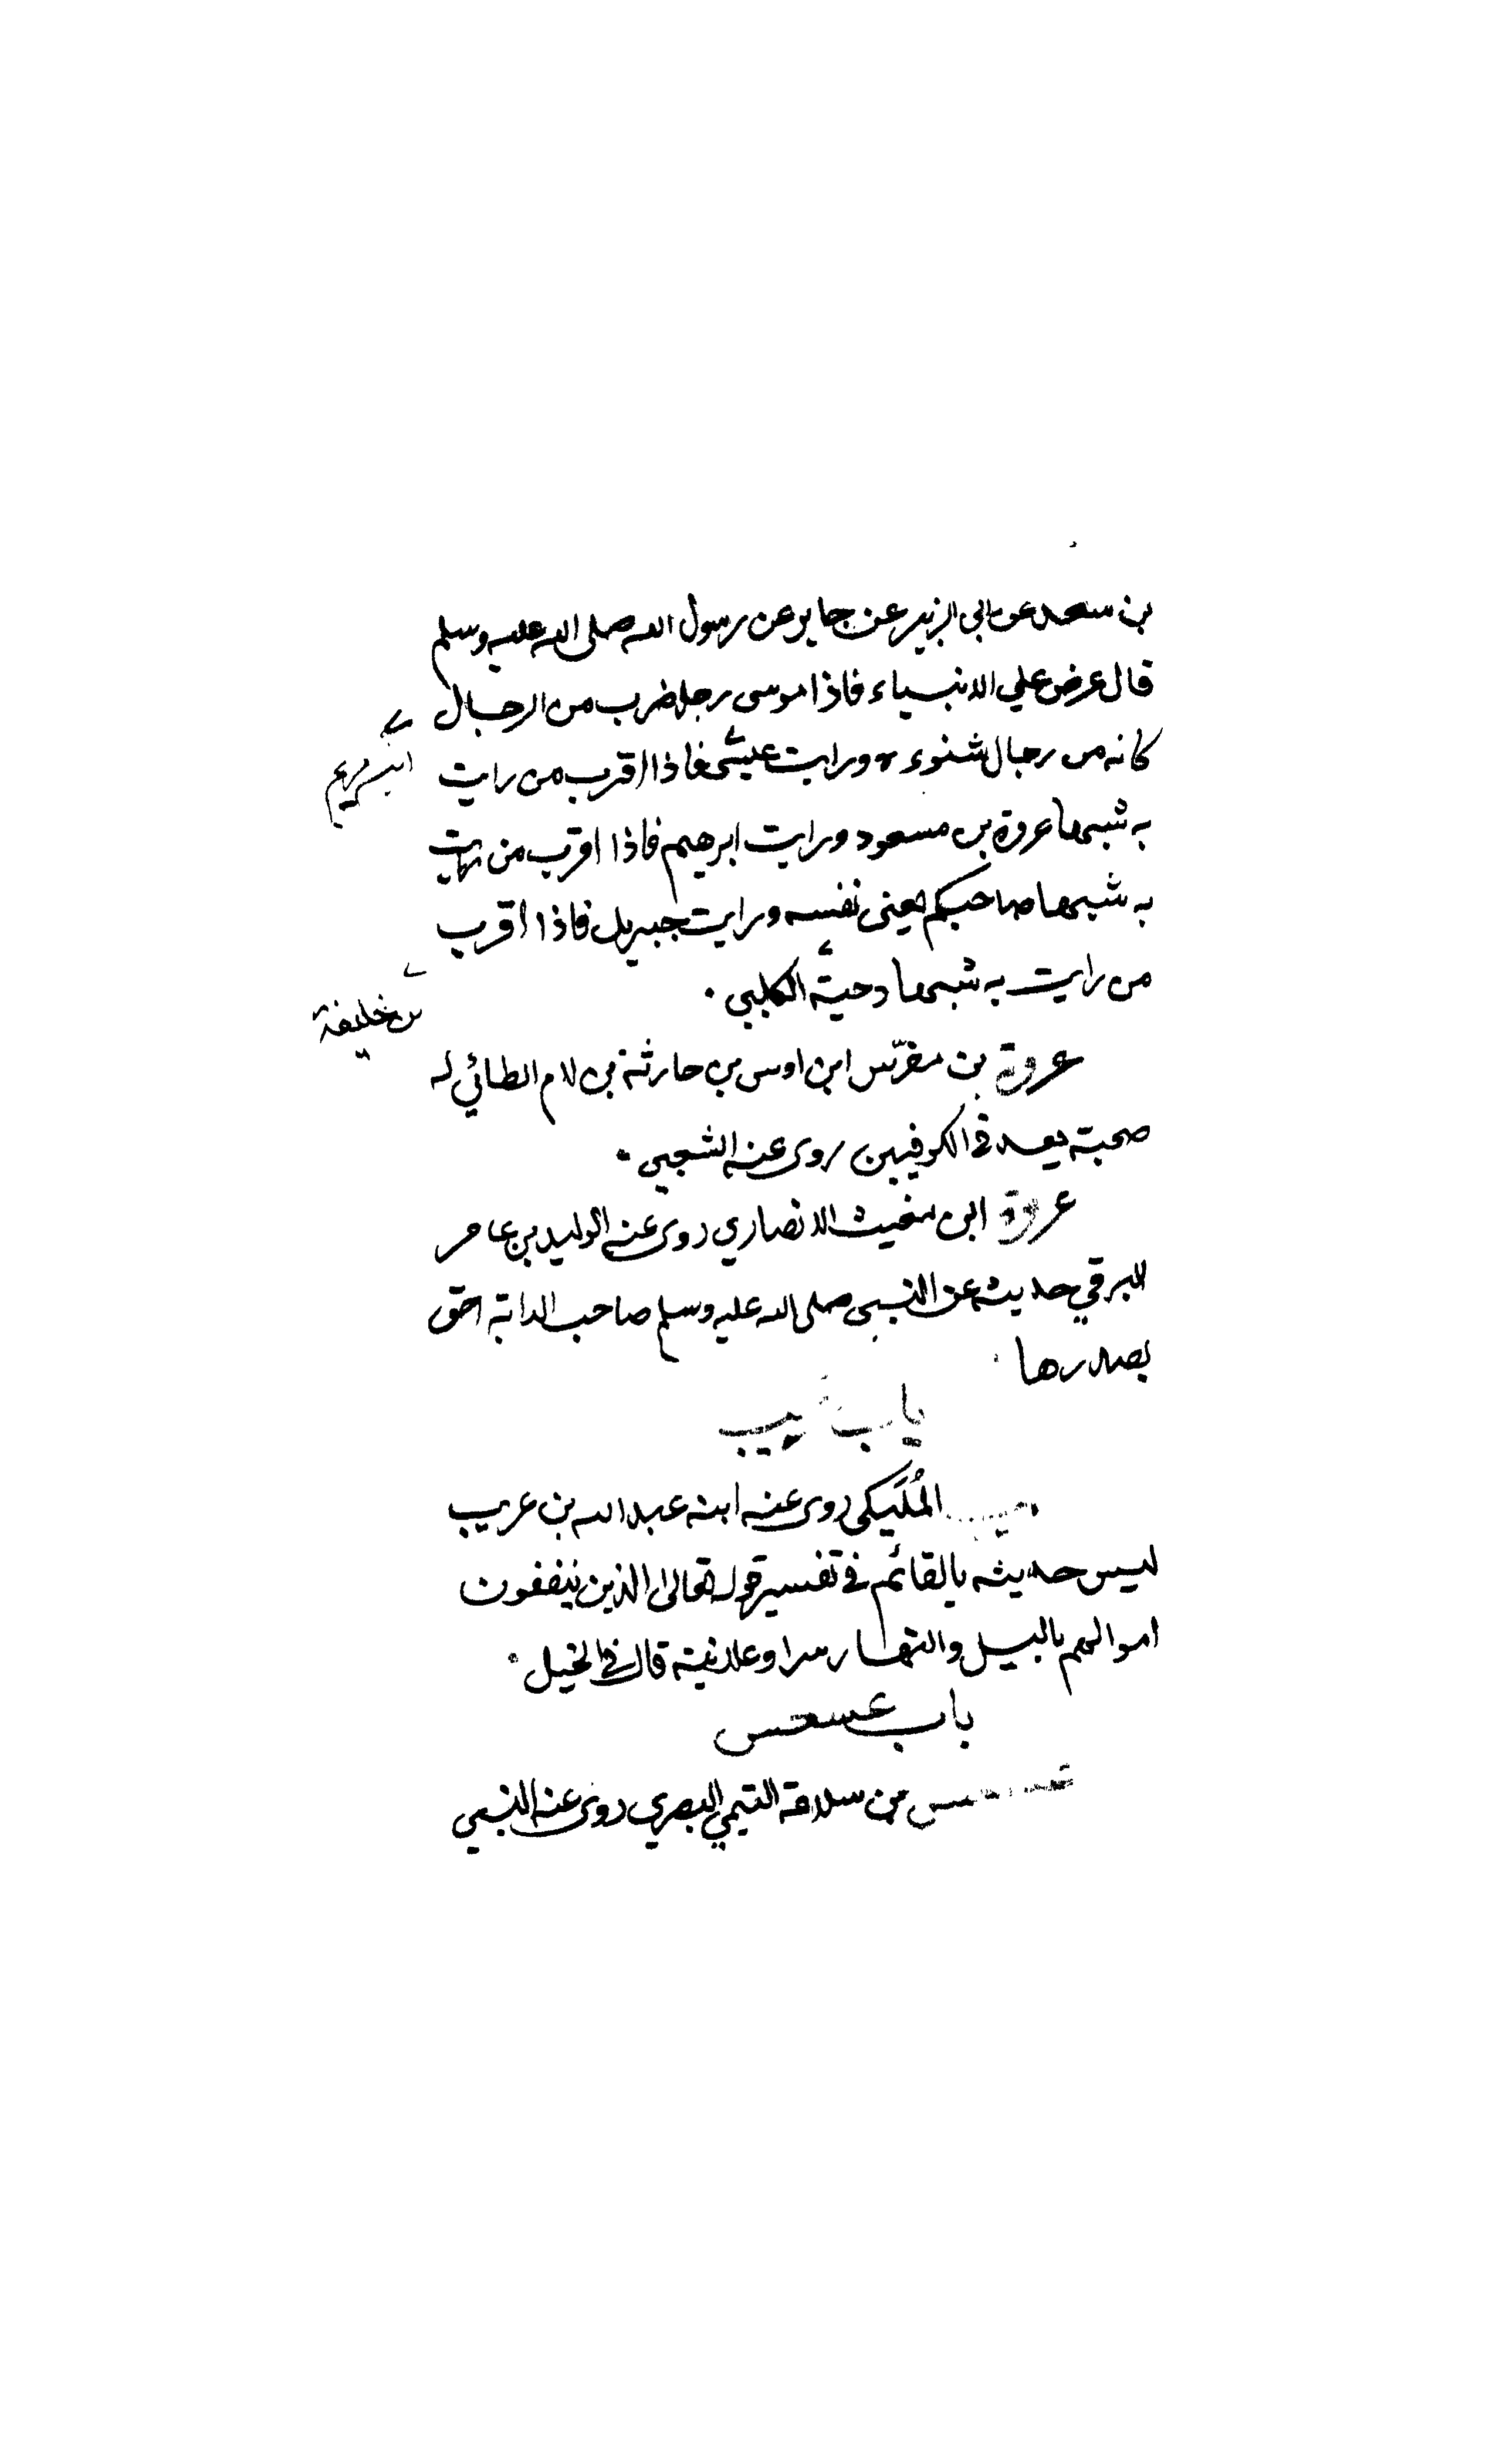 بن سعد عن ابي الزبير عن جابر عن رسول الله صلى الله عليه وسلم
قال عرض علي الانبياء فاذا موسى رجل ضرب من الرجال
كانه من رجال شنوءة ورايت عيسى فاذا اقرب من رايت
ابن مريم
به شبها عروة بن مسعود ورايت ابرهيم فاذا اقرب من رايت
به شبها صاحبكم يعنى نفسه ورايت جبريل فاذا اقرب
من رايت به شبها دحية الكلبي .
بن خليفة
عروة بن مضرّس ابن اوس بن حارثة بن لام الطائي له
صحبة يعد في الكوفيين روى عنه الشعبي .
عروة ابن مغيث الانصاري روى عنه الوليد بن عامر
البرقي حديثه عن النبى صلى الله عليه وسلم صاحب الدابة احق
بصدرها .
باب
المُلَيكى روى عنه ابنه عبد الله بن عريب
ليس حديثه بالقائم في تفسير قوله تعالى الذين ينفقون
اموالهم بالليل والنهار سرا وعلانية قال في الخيل .
باب عسعس
بن سلامة التيمي البصري روى عنه النبي